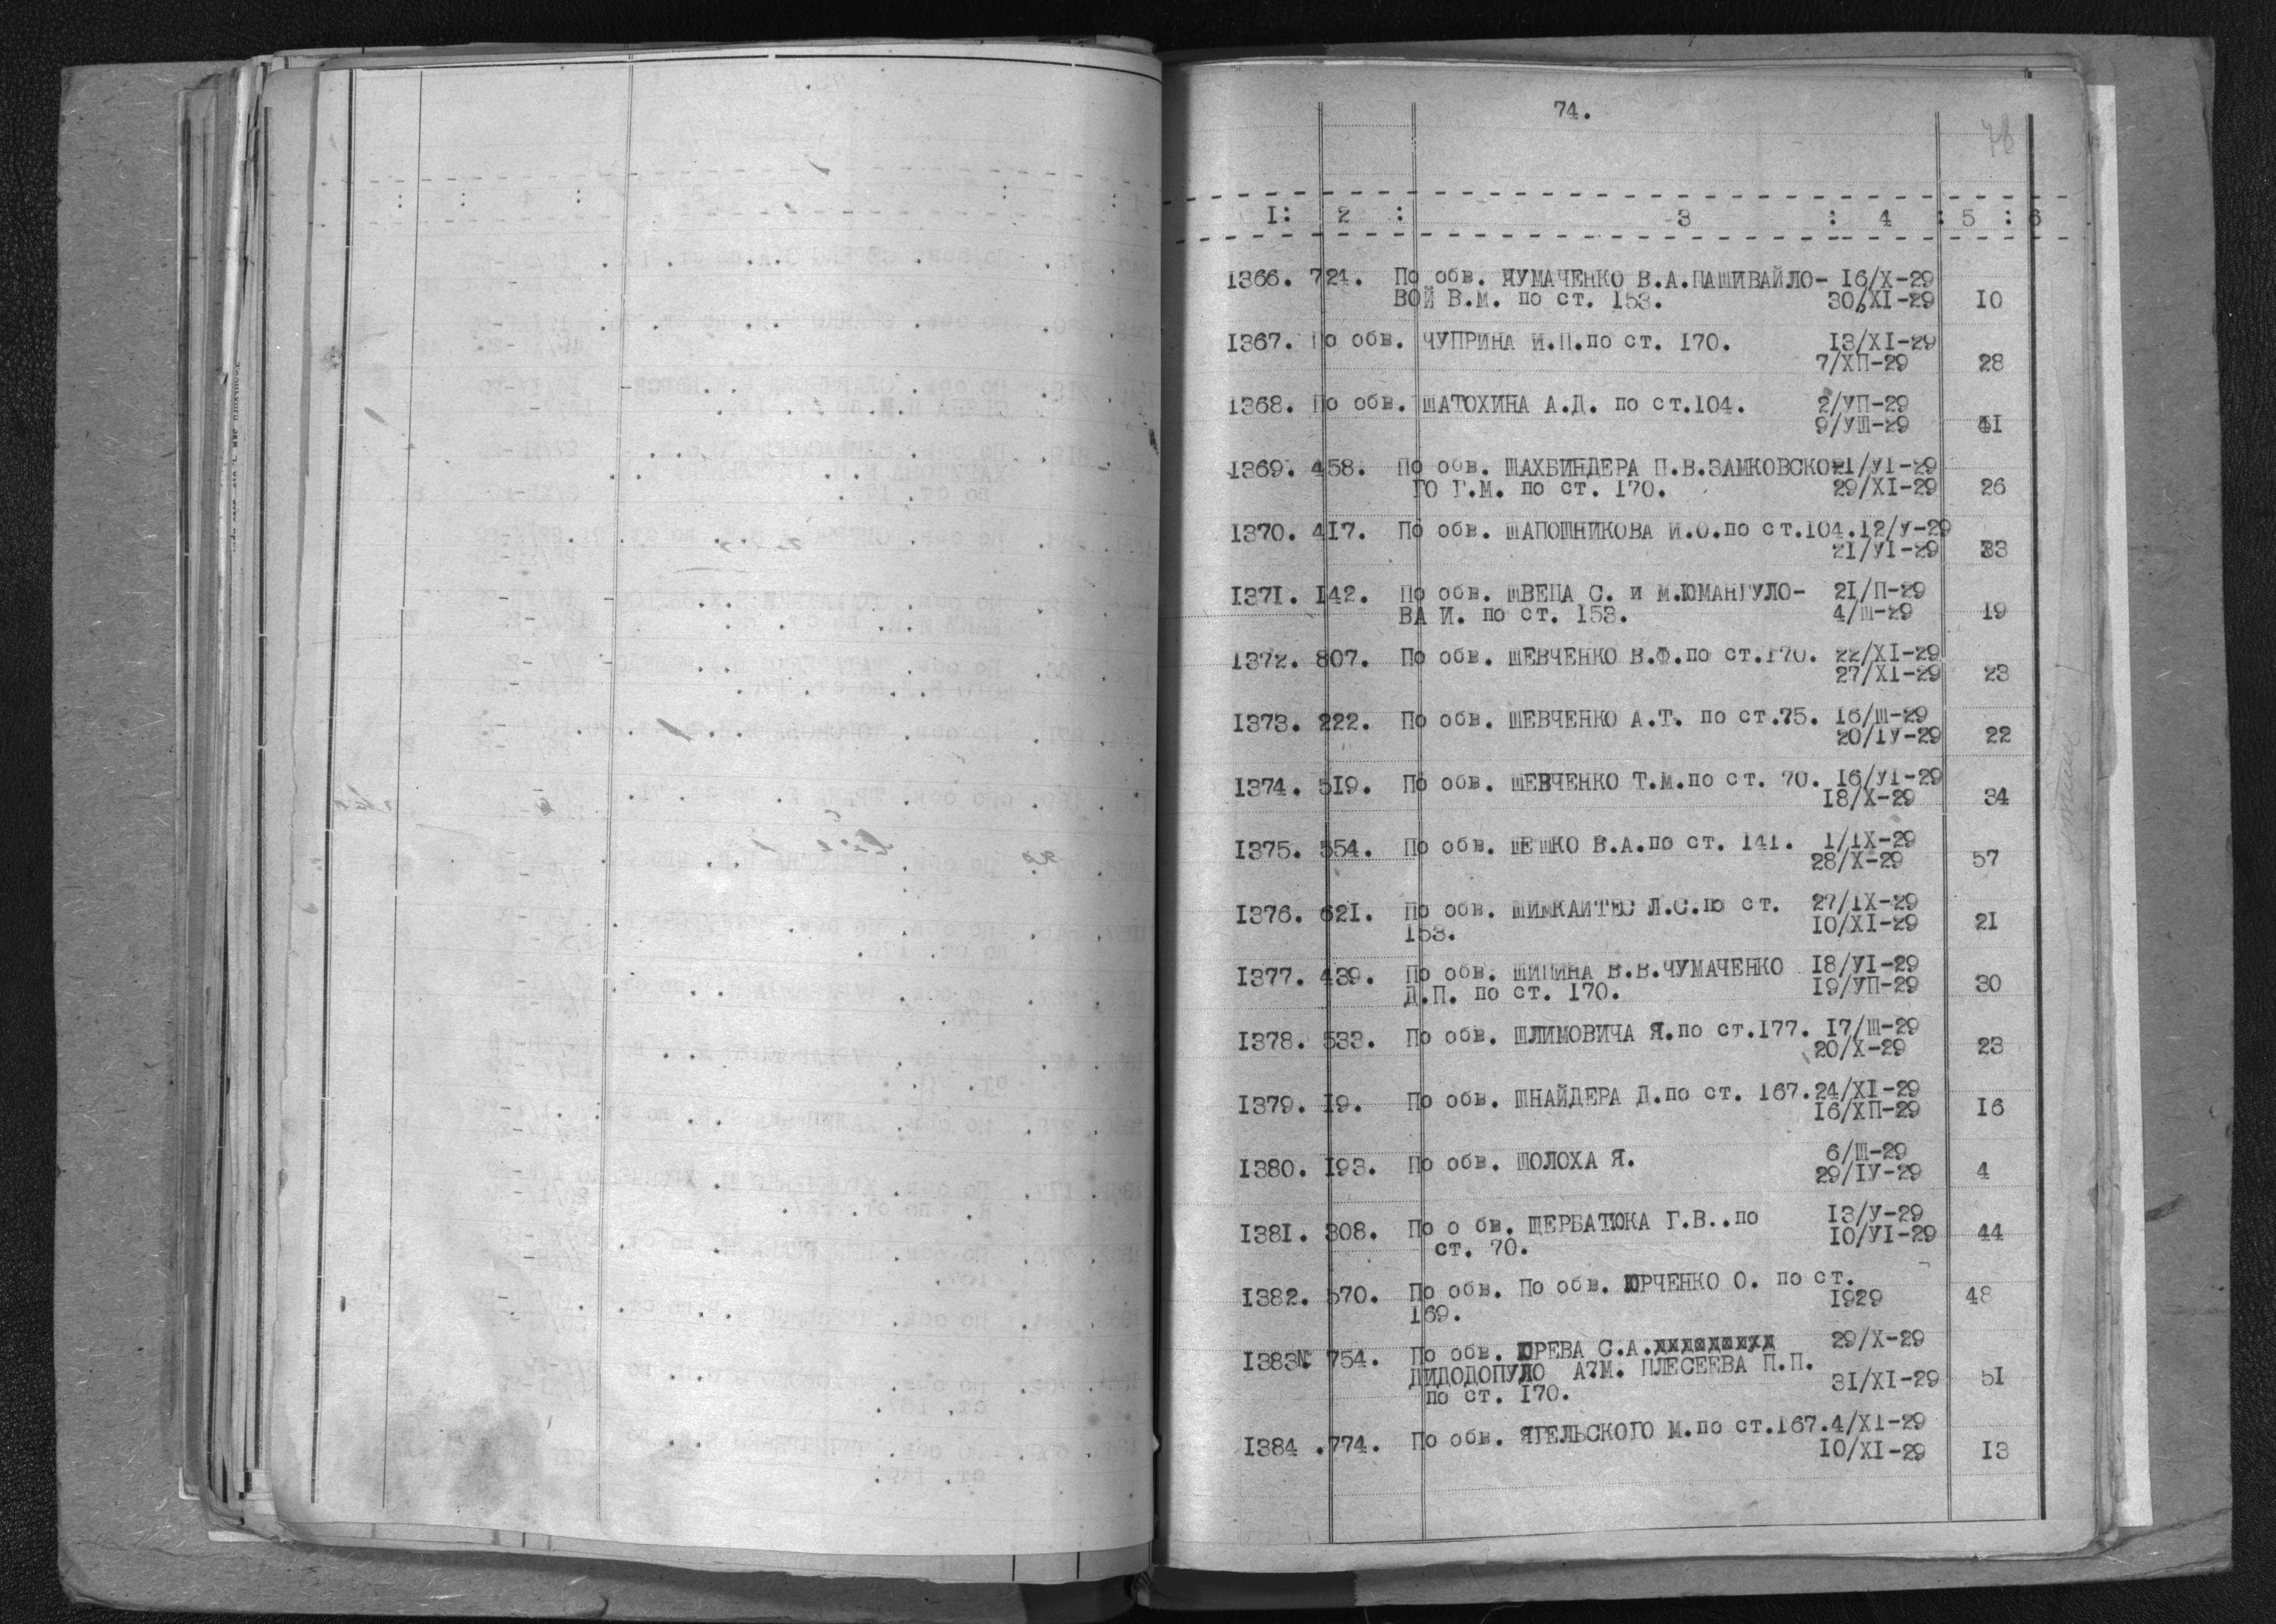 74.
78
I: 2 : 3 : 4 : 5 : 6
I366. 724. По обв. ЧУМАЧЕНКО В.А.ПАШИВАЙЛО- I6/X-29
ВОЙ В.М. по ст. 153. 30/XI-29 I0
I367. По обв. ЧУПРИНА И.П.по ст. I70. I3/XI-29
7/ХП-29 28
I368. По обв. ШАТОХИНА А.Д. по ст.I04. 2/УП-29
9/УШ-29 4I
I369. 458. По обв. ШАХБИНДЕРА П.В.ЗАМКОВСКО- 21/УI-29
ГО Г.М. по ст. I70. 29/XI-29 26
I370. 4I7. По обв. ШАПОШНИКОВА И.О.по ст.I04.I2/У-29
2I/УI-29 33
I37I. I42. По обв. ШВЕЦА С. и М.ЮМАНГУЛО- 2I/П-29
ВА И. по ст. I53. 4/Ш-29 I9
I372. 807. По обв. ШЕВЧЕНКО В.Ф.по ст.I70. 22/XI-29
27/XI-29 23
I373. 222. По обв. ШЕВЧЕНКО А.Т. по ст.75. I6/Ш-29
20/IУ-29 22
I374. 5I9. По обв. ШЕВЧЕНКО Т.М.по ст. 70. I6/УI-29
I8/X-29 34
I375. 554. По обв. ШЕШКО В.А.по ст. I4I. I/IX-29
28/X-29 57
I376. 62I. По обв. ШИМКАИТЕС Л.С.по ст. 27/IX-29
I53. I0/XI-29 2I
I377. 439. По обв. ШИПИНА В.В.ЧУМАЧЕНКО I8/УI-29
Д.П. по ст. I70. I9/УП-29 30
I378. 533. По обв. ШЛИМОВИЧА Я.по ст.I77. I7/Ш-29
20/X-29 23
I379. I9. По обв. ШНАЙДЕРА Д.по ст. I67.24/XI-29
I6/ХП-29 I6
I380. I93. По обв. ШОЛОХА Я. 6/Ш-29
29/IУ-29 4
I38I. 308. По о бв. ЩЕРБАТЮКА Г.В..по I3/У-29
ст. 70. I0/УI-29 44
I382. 570. По обв. По обв. ЮРЧЕНКО О. по ст.
I69. I929 48
I383№ 754. По обв. ЮРЕВА С.А. 29/X-29
ДИДОДОПУЛО А?М. ПЛЕСЕЕВА П.П.
по ст. I70. 3I/XI-29 5I
I384 .774. По обв. ЯГЕЛЬСКОГО М.по ст.I67.4/XI-29
I0/XI-29 I3